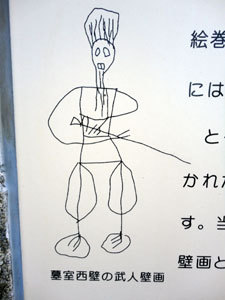 絵巻
には
と
かれた
す。当
壁画と
墓室西壁の武人壁画